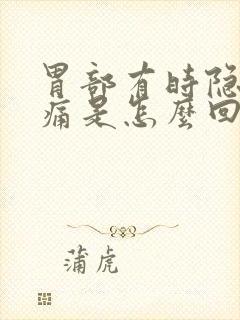 胃部有時隐
痛是怎麼回
蒲虎